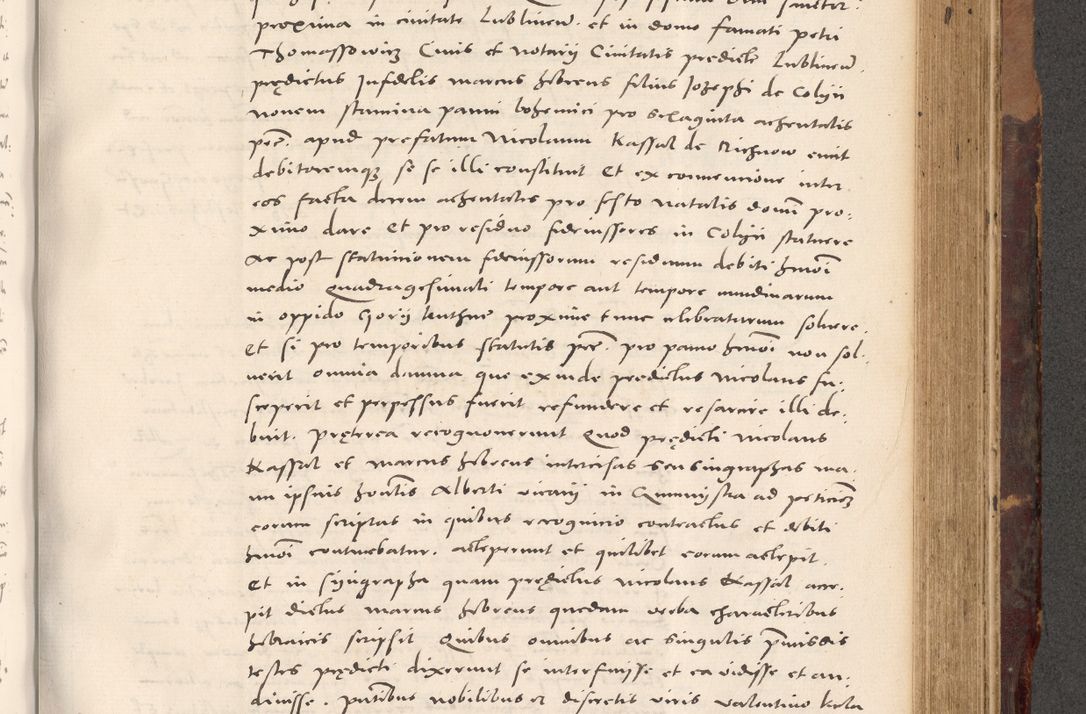 proxima in civitate Lublinen. et in domo famati petri
Thomassowicz Civis et Notarij Civitatis predicte Lublinen.
prędictus Infidelis marcus hebreus filius Jozephi de Colyii
nonem stamina panni bohemici pro sexaginta achentalis
pec. apud prefatum Nicolaum Kassal de Richnow emit
debitoremqz se se illi constituit Et ex convencione inter
eos facta decem achentales pro festo natalis domi pro:
ximo dare Et pro residuo fideiussores in Colyii statuere
Ac post statuicionem fideiussorum residuum debiti hmoi
medio Quadragesimali tempore aut tempore nundinarum
in oppido Gorij tuthne proxime tunc celibraturum solvere.
Et si pro temporibus statutis pec. pro panno hmoi non sol:
verit omnia damna que exinde predictus Nicolaus su:
sceperit et perpessus fuerit refundere et resarcire illi de:
buit. Prętrea recognoverunt Quod prędicti Nicolaus
Kassal et Marcus hebreus intercisas seu singraphas ma:
nu ipsius hontis Alberti vicarij in ad peticionem
eorum scriptas in quibus recognicio contractus et debiti
hmoi continebatur. acceperunt et quilibet eorum accepit.
Et in syngrapha quam prędictus Nicolaus Kassal acce:
pit dictus marcus hebreus quędam verba characteribus
hebraicis scripsit Quibus omnibus ac singulis pmissis
testes prędicti dixerunt se interfuisse et ea vidisse et au:
divisse. Pntibus nobilibus et discretis viris valentino